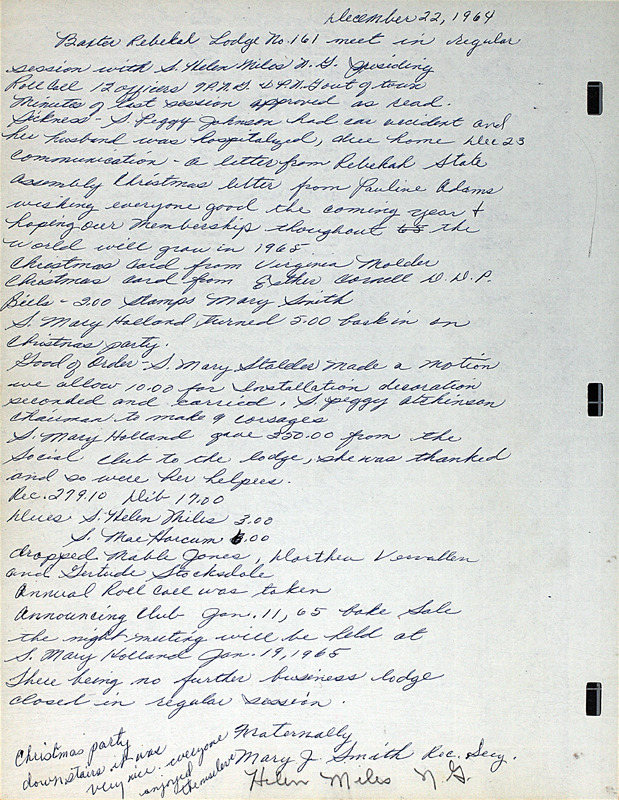 December 22, 1964
Baxter Rebekah Lodge No. 161 meet in regular
session with S. Helen Miles N.G. presiding
Roll Call 12 officers 7 P.N.G. & P.N.G out of town
Minutes of last session approved as read.
Sickness - S. Peggy Johnson had car accident and
her husband was hospitalized, due home Dec 23
Communication - a letter from Rebekah State
Assembly Christmas letter from Pauline Adams
wishing everyone good the coming year &
hoping our Membership thoughout the
world will grow in 1965
Christmas card from Virginia Molder
Christmas card from Esther Cornell D.D.P.
Bills - 2.00 Stamps Mary Smith
S. Mary Holland, turned 5.00 back in on
Christmas party.
Good of Order - S. Mary Stalder made a motion
we allow 10.00 for Installation decoration
seconded and carried, S. Peggy Atchinson
chairman to make 9 corsages
S. Mary Holland gave 250.00 from the
Social Club to the lodge, she was thanked
and so were her helpers.
Rec. 279.10 Dib 17.00
Dues S. Helen Miles 3.00
S. Mae Harcum 6.00
dropped Mable Jones, Dorthea
and Gertude Stocksdale
Annual Roll Call was taken
Announcing Club Jan. 11, 65 bake Sale
the night meeting will be held at
S. Mary Holland Jan. 19, 1965
There being no further business lodge
closed in regular session.
Fraternally
Mary J. Smith Rec. Secy.
Helen Miles N.G.
Christmas party
downstairs it was
very nice. everyone
enjoyed
themselve